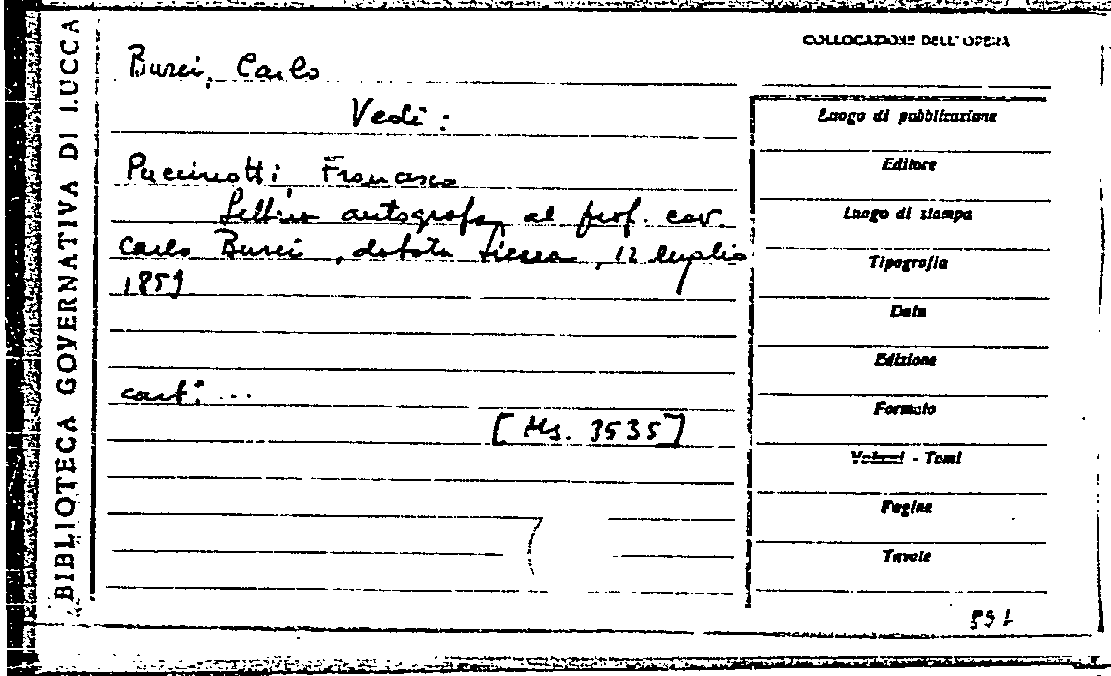 BIBLIOTECA GOVERNATIVA DI LUCCA
COLLOCAZIONE DELL'OPERA
Burci, Carlo
Vedi:
Puccinotti, Francesco
Lettera autografa al prof. cav.
Carlo Burci, datata Siena, 12 luglio
1859
cart: ...
[Ms. 3535]
Luogo di pubblicazione
Editore
Luogo di stampa
Tipografia
Data
Edizione
Formato
Volumi - Tomi
Pagine
Tavole